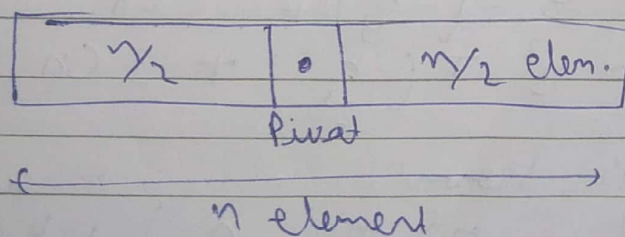 n/2 • n/2 elem.
Pivat
n element